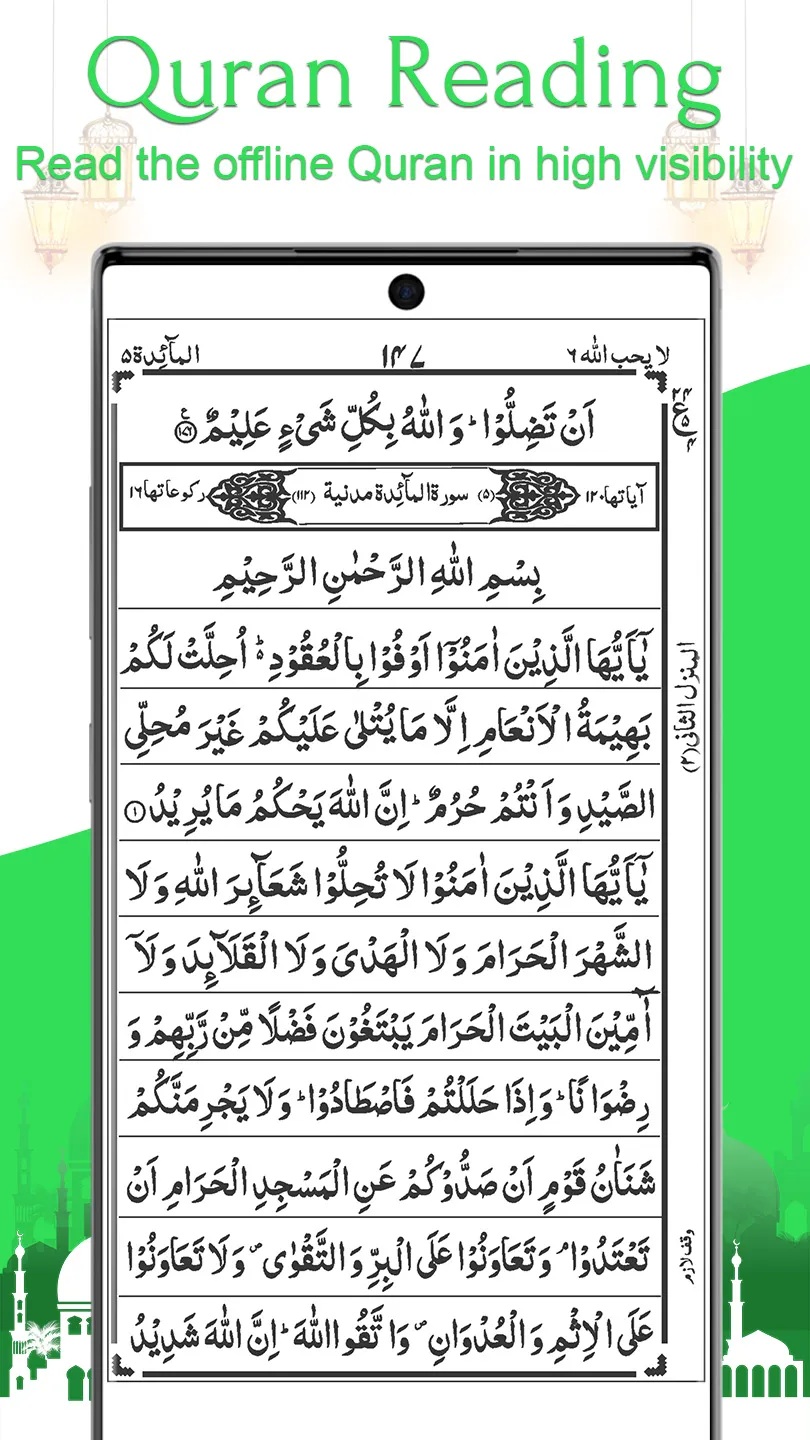 Quran Reading
Read the offline Quran in high visibility
لا يحب الله ٦
١٤٧
المآئدة ٥
اَنْ تَضِلُّوْا ؕ وَ اللّٰهُ بِكُلِّ شَیْءٍ عَلِیْمٌ ﴿۱۷۶﴾
ع
٢٤
ع
٥
٤
اٰیاتها ١٢٠
(٥) سورة المآئدة مدنية (١١٢)
ركوعاتها ١٦
بِسْمِ اللّٰهِ الرَّحْمٰنِ الرَّحِیْمِ
یٰۤاَیُّهَا الَّذِیْنَ اٰمَنُوْۤا اَوْفُوْا بِالْعُقُوْدِ ؕ۬ اُحِلَّتْ لَكُمْ
بَهِیْمَةُ الْاَنْعَامِ اِلَّا مَا یُتْلٰی عَلَیْكُمْ غَیْرَ مُحِلِّی
الصَّیْدِ وَ اَنْتُمْ حُرُمٌ ؕ اِنَّ اللّٰهَ یَحْكُمُ مَا یُرِیْدُ ﴿۱﴾
یٰۤاَیُّهَا الَّذِیْنَ اٰمَنُوْا لَا تُحِلُّوْا شَعَآئِرَ اللّٰهِ وَ لَا
الشَّهْرَ الْحَرَامَ وَ لَا الْهَدْیَ وَ لَا الْقَلَآئِدَ وَ لَاۤ
آٰمِّیْنَ الْبَیْتَ الْحَرَامَ یَبْتَغُوْنَ فَضْلًا مِّنْ رَّبِّهِمْ وَ
رِضْوَانًا ؕ وَ اِذَا حَلَلْتُمْ فَاصْطَادُوْا ؕ وَ لَا یَجْرِمَنَّكُمْ
شَنَاٰنُ قَوْمٍ اَنْ صَدُّوْكُمْ عَنِ الْمَسْجِدِ الْحَرَامِ اَنْ
تَعْتَدُوْا ۘ وَ تَعَاوَنُوْا عَلَی الْبِرِّ وَ التَّقْوٰی ۪ وَ لَا تَعَاوَنُوْا
عَلَی الْاِثْمِ وَ الْعُدْوَانِ ۪ وَ اتَّقُوا اللّٰهَ ؕ اِنَّ اللّٰهَ شَدِیْدُ
المنزل الثانی (٢)
وقف لازم